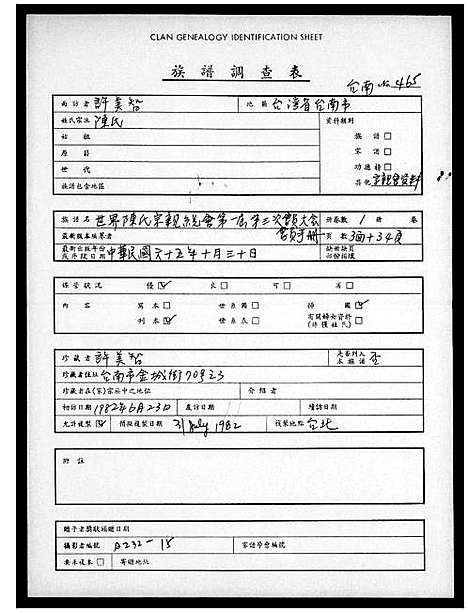 CLAN GENEALOGY IDENTIFICATION SHEET
族譜調查表
台南 No 465
面訪者 許美智 地區 台灣省台南市
姓氏宗派 陳氏 資料類別
始祖 族譜 □
原籍 家譜 □
世代 功德榜 □
族譜包含地區 其他 宗親會資料
族譜名 世界陳氏宗親總會第一屆第三次大會 冊卷數 1 冊 卷
最新版本編纂者 會員手冊 頁數 3面+34頁
最新出版年份或序跋日期 中華民國六十五年十月三十日 缺冊缺頁部份描環
保管狀況 優 ☑ 良 □ 可 □ 差 □
內容 寫本 □ 世系圖 □ 插圖 ☑
刊本 ☑ 世系表 □ 有關婦女資料 (非僅姓氏) □
珍藏者 許美智 是否列入本族譜 否
珍藏者住址 台南市金城街70號23
珍藏者在(家)宗示中之地位 介紹者
初訪日期 1982年6月23日 友訪日期 續訪日期
允許複製 ☑ 預擬複製日期 31 July 1982 複製地點 台北
附註
贈予者獎狀頒贈日期
攝影者編號 A232-15 家譜學會編號
要未複本 □ 寄贈地址